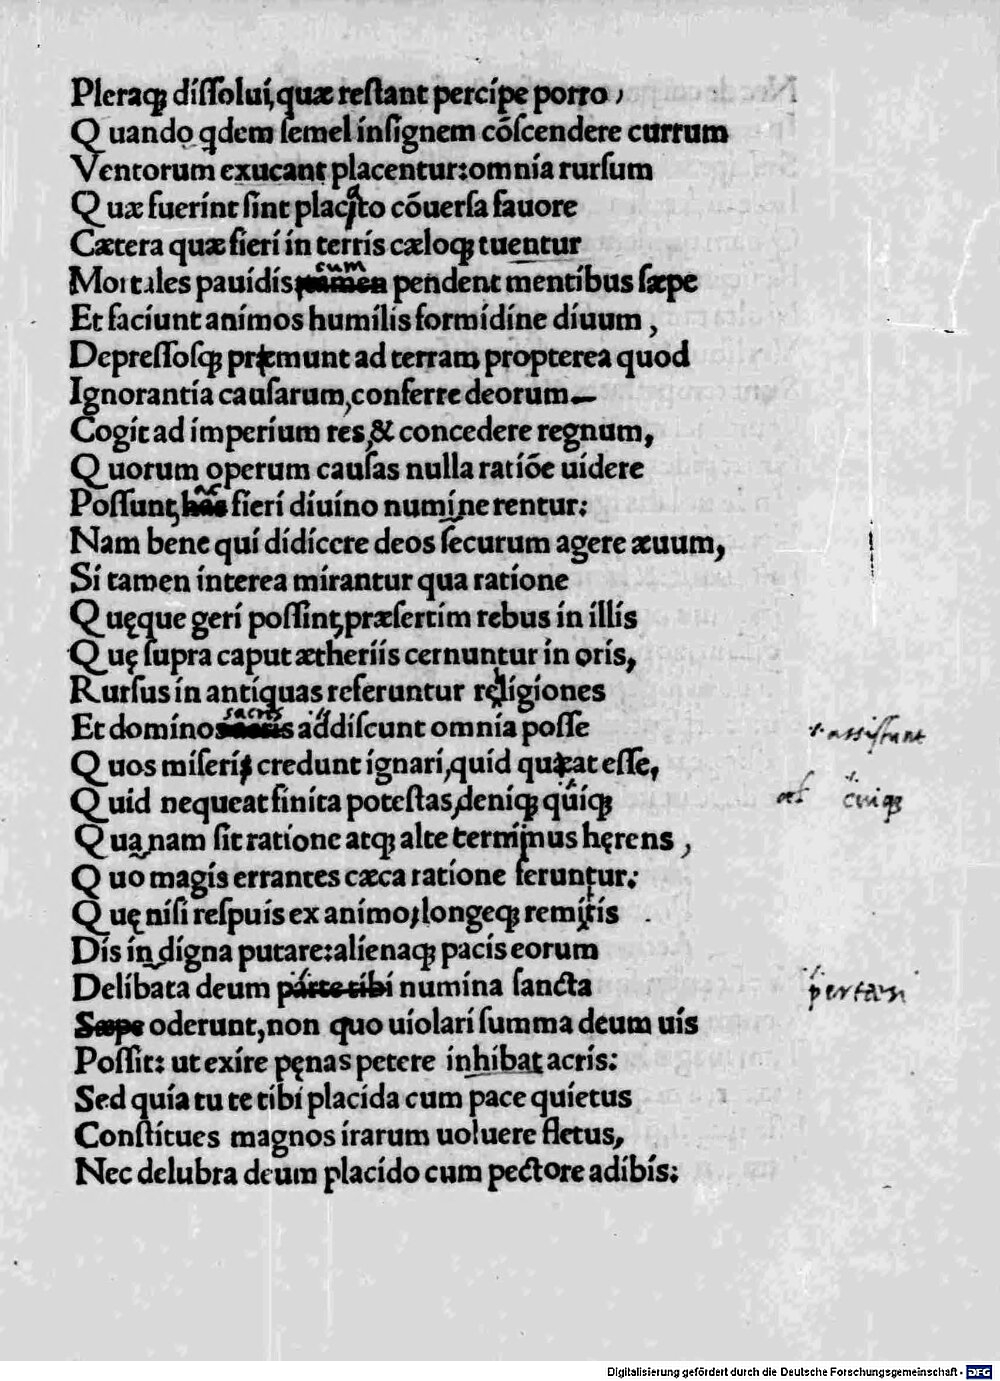 Pleraq; diſſolui, quæ reſtant percipe porro,
Quando qdem ſemel inſignem cōſcendere currum
Ventorum exucant placentur: omnia rurſum
Quæ fuerint ſint placito cōuerſa fauore
Cætera quæ fieri in terris cæloq; tuentur
cum
Mortales pauidis tamen pendent mentibus ſæpe
Et faciunt animos humilis formidine diuum,
Depreſſoſq; præmunt ad terram propterea quod
Ignorantia cauſarum, conferre deorum
Cogit ad imperium res, & concedere regnum,
Quorum operum cauſas nulla ratiōe uidere
Poſſunt, has fieri diuino numine rentur:
Nam bene qui didicere deos ſecurum agere æuum,
Si tamen interea mirantur qua ratione
Quęque geri poſſint, præſertim rebus in illis
Quę ſupra caput ætheriis cernuntur in oris,
Rurſus in antiquas referuntur religiones
sacris
Et domino sacris addiſcunt omnia poſſe
assistunt
Quos miſeris credunt ignari, quid quæat eſſe,
Quid nequeat finita poteſtas, deniq; quiq;
cuiq;
Qua nam ſit ratione atq; alte terminus hęrens,
Quo magis errantes cæca ratione feruntur:
Quę niſi reſpuis ex animo, longeq; remitis
Dis in digna putare: alienaq; pacis eorum
Delibata deum parte tibi numina ſancta
Sæpe oderunt, non quo uiolari ſumma deum uis
Poſſit: ut exire pęnas petere inhibat acris:
Sed quia tu te tibi placida cum pace quietus
Conſtitues magnos irarum uoluere fletus,
Nec delubra deum placido cum pectore adibis:
Digitalisierung gefördert durch die Deutsche Forschungsgemeinschaft - DFG